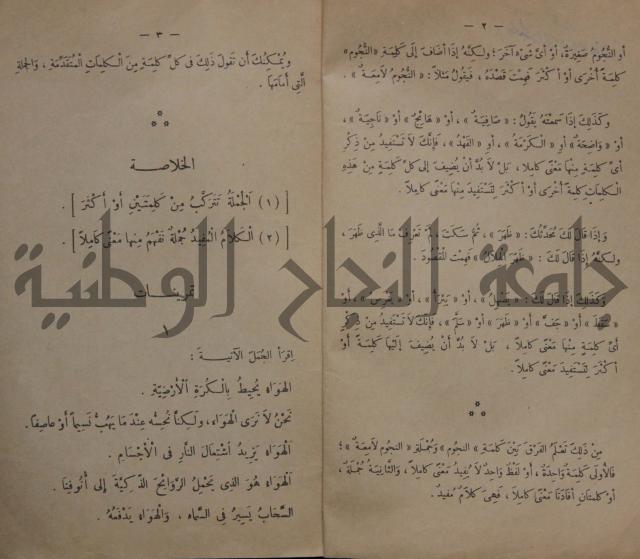 — ٢ —
أو النُّجُومُ صَغِيرَةٌ، أوْ أىَّ شَىْءٍ آخَرَ؛ ولكِنَّهُ إذَا أضَافَ إلَى كَلِمَةِ «النُّجُومِ»
كلِمَةً أُخْرَى أوْ أكْثَرَ فَهِمْتَ قَصْدَهُ، فَيَقُولُ مَثَلاً: «النُّجُومُ لاَمِعَةٌ».
وكَذَلِكَ إذَا سَمِعْتَهُ يَقُولُ: «صَافِيَةٌ»، أوْ «هَائِجٌ» أوْ «نَاجِيَةٌ»،
أوْ «وَاضِحَةٌ» أوِ «الكَرْمَةُ»، أوِ «الفَهْدُ»، فَإِنَّكَ لاَ تَسْتَفِيدُ مِنْ ذِكْرِ
أىِّ كلِمَةٍ مِنْهَا مَعْنًى كامِلا، بَلْ لاَ بُدَّ أنْ يُضِيفَ إلى كلِّ كَلِمَةٍ مِنْ هَذِهِ
الكلِمَاتِ كلِمَةً أخْرَى أوْ أكْثَرَ لِتَسْتَفِيدَ مِنْهَا مَعْنًى كامِلاً.
وَإذَا قالَ لَكَ مُحَدِّثُكَ: «ظَهَرَ»، ثُمَّ سَكَتَ، لَمْ تَعْرِفْ مَا الَّذِى ظَهَرَ،
ولكِنَّهُ إذَا قالَ لَكَ: «ظَهَرَ الْهِلاَلُ» فَهِمْتَ الْمَقْصُودَ.
وكَذَلِكَ إذَا قالَ لَكَ: أوْ «يَغْرِسُ»، أوْ
أوْ «جَفَّ» أوْ «ظَهَرَ» أوْ «سَلَّمَ»، فَإنَّكَ لاَ تَسْتَفِيدُ مِنْ ذِكْرِ
أىِّ كلِمَةٍ مِنْهَا مَعْنًى كامِلاً، بَلْ لاَ بُدَّ أنْ يُضِيفَ إلَيْهَا كلِمَةً أوْ
أكْثَرَ لِتَسْتَفِيدَ مَعْنًى كامِلاً.
مِنْ ذَلِكَ تَعْلَمُ الفَرْقَ بَيْنَ كَلِمَةِ «النجُومِ» وَجُمْلَةِ «النجومُ لاَمِعَةٌ»؛
فَالأُولَى كَلِمَةٌ وَاحِدَةٌ، أوْ لَفْظٌ وَاحِدٌ لاَ يُفِيدُ مَعْنًى كامِلاً، وَالثَّانِيَةُ جُمْلَةٌ،
أوْ كلِمَتانِ أفَادَتَا مَعْنًى كامِلاً، فَهِىَ كَلاَمٌ مُفِيدٌ.
— ٣ —
ويُمْكِنُكَ أنْ تَقُولَ ذَلِكَ فى كلِّ كَلِمَةٍ مِنَ الْكلِمَاتِ الْمُتَقَدِّمَةِ، وَالجُمْلَةِ
الَّتِى أمَامَهَا.
الخلاصة
(١) الجُمْلَةُ تَتَرَكَّبُ مِنْ كَلِمَتَيْنِ أوْ أكْثَرَ.
(٢) الْكلاَمُ الْمُفِيدُ جُمْلَةٌ تَفْهَمُ مِنها مَعْنًى كَامِلاً.
تمرينات
١
اِقرَأ الجُمَلَ الآتِيَةَ:
الهَوَاء يُحِيطُ بِالْكُرَةِ الْأَرْضِيَّةِ.
نَحْنُ لاَ نَرَى الْهَوَاءَ، ولَكِنَّا نُحِسُّهُ عِنْدَ مَا يَهُبُّ نَسِيماً أوْ عاصِفاً.
الْهَوَاء يَزِيدُ اشْتِعَالَ النَّارِ فى الْأَجْسَامِ.
الهَوَاء هُوَ الَّذِى يَحْمِلُ الرَّوَائِحَ الذَّكِيَّةَ إلى أُنُوفِنَا.
السَّحَابُ يَسِيرُ فى السَّمَاءِ، وَالْهَوَاء يَدْفَعُهُ.
جامعة النجاح الوطنية